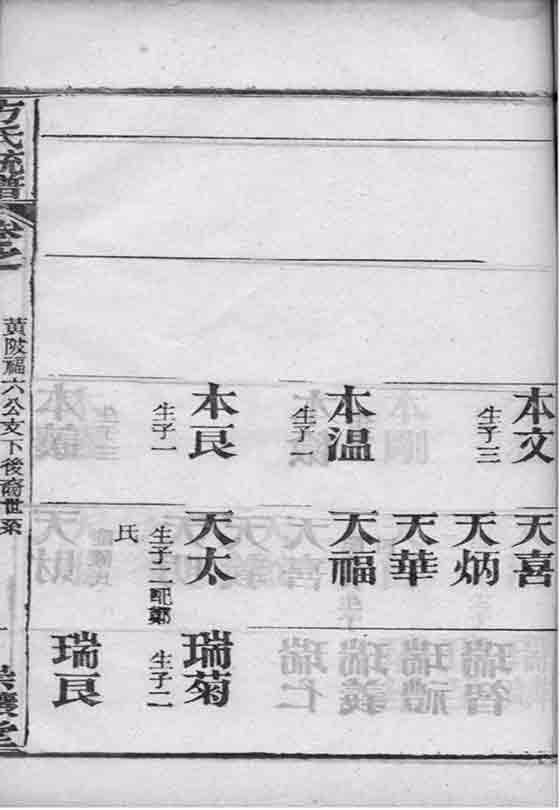 本文
生子三
本温
生子一
本良
生子一
天喜
天炳
天華
天福
天太
生子二配鄭
氏
瑞菊
生子二
瑞良
方氏統譜
黃陂福六公支下後裔世系